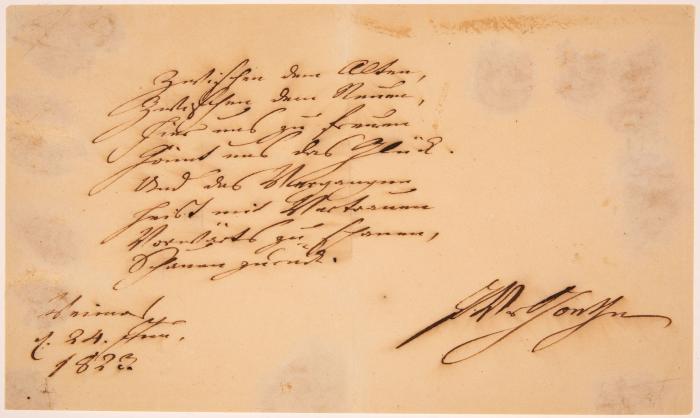 Zwischen dem Alten,
Zwischen dem Neuen,
Hier uns zu freuen
Gönnt uns das Glück.
Und das Vergangne
Heist mit Vertrauen
Vorwärts zu schauen,
Schauen zurück.
Weimar
d. 24.
JWvGoethe